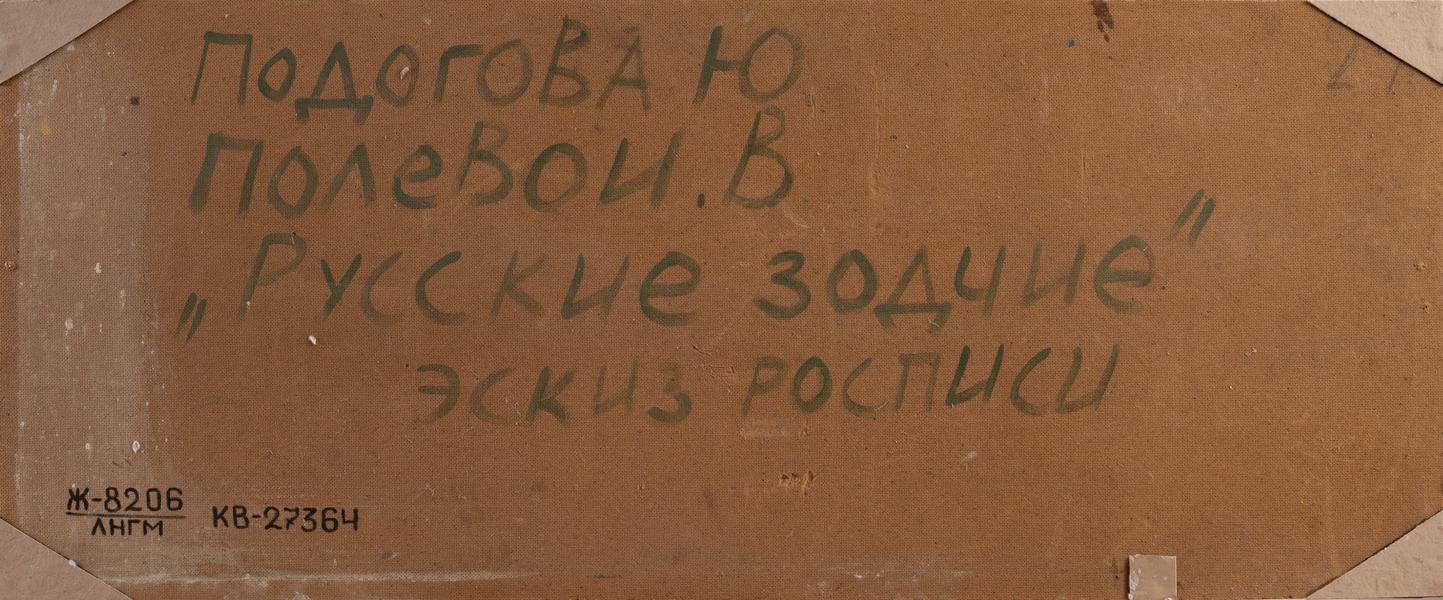 Подогова Ю
Полевой.В
„Русские зодчие"
эскиз росписи
Ж-8206
ЛНГМ
КВ-27364